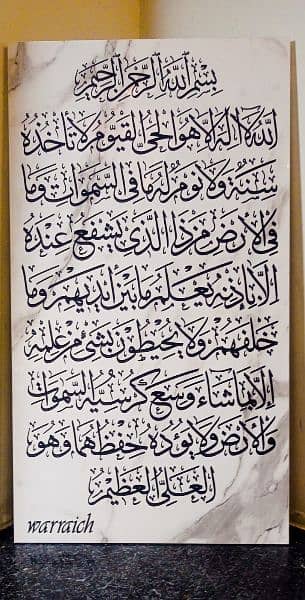 بِسْمِ ٱللَّهِ ٱلرَّحْمَٰنِ ٱلرَّحِيمِ
ٱللَّهُ لَا إِلَٰهَ إِلَّا هُوَ ٱلْحَىُّ ٱلْقَيُّومُ لَا تَأْخُذُهُ
سِنَةٌ وَلَا نَوْمٌ لَهُ مَا فِى ٱلسَّمَٰوَاتِ وَمَا
فِى ٱلْأَرْضِ مَنْ ذَا ٱلَّذِى يَشْفَعُ عِنْدَهُ
إِلَّا بِإِذْنِهِ يَعْلَمُ مَا بَيْنَ أَيْدِيهِمْ وَمَا
خَلْفَهُمْ وَلَا يُحِيطُونَ بِشَىْءٍ مِنْ عِلْمِهِ
إِلَّا بِمَا شَاءَ وَسِعَ كُرْسِيُّهُ ٱلسَّمَٰوَاتِ
وَٱلْأَرْضَ وَلَا يَئُودُهُ حِفْظُهُمَا وَهُوَ
ٱلْعَلِىُّ ٱلْعَظِيمُ
warraich